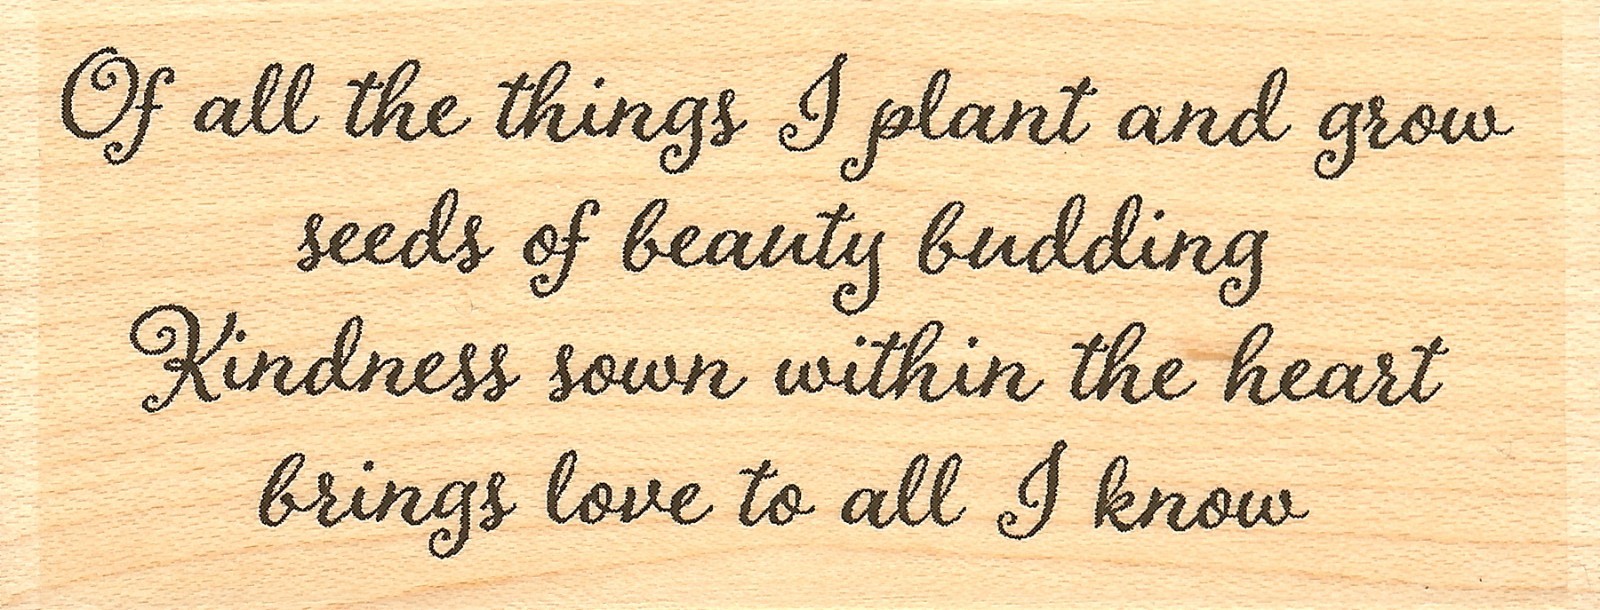 Of all the things I plant and grow
seeds of beauty budding
Kindness sown within the heart
brings love to all I know